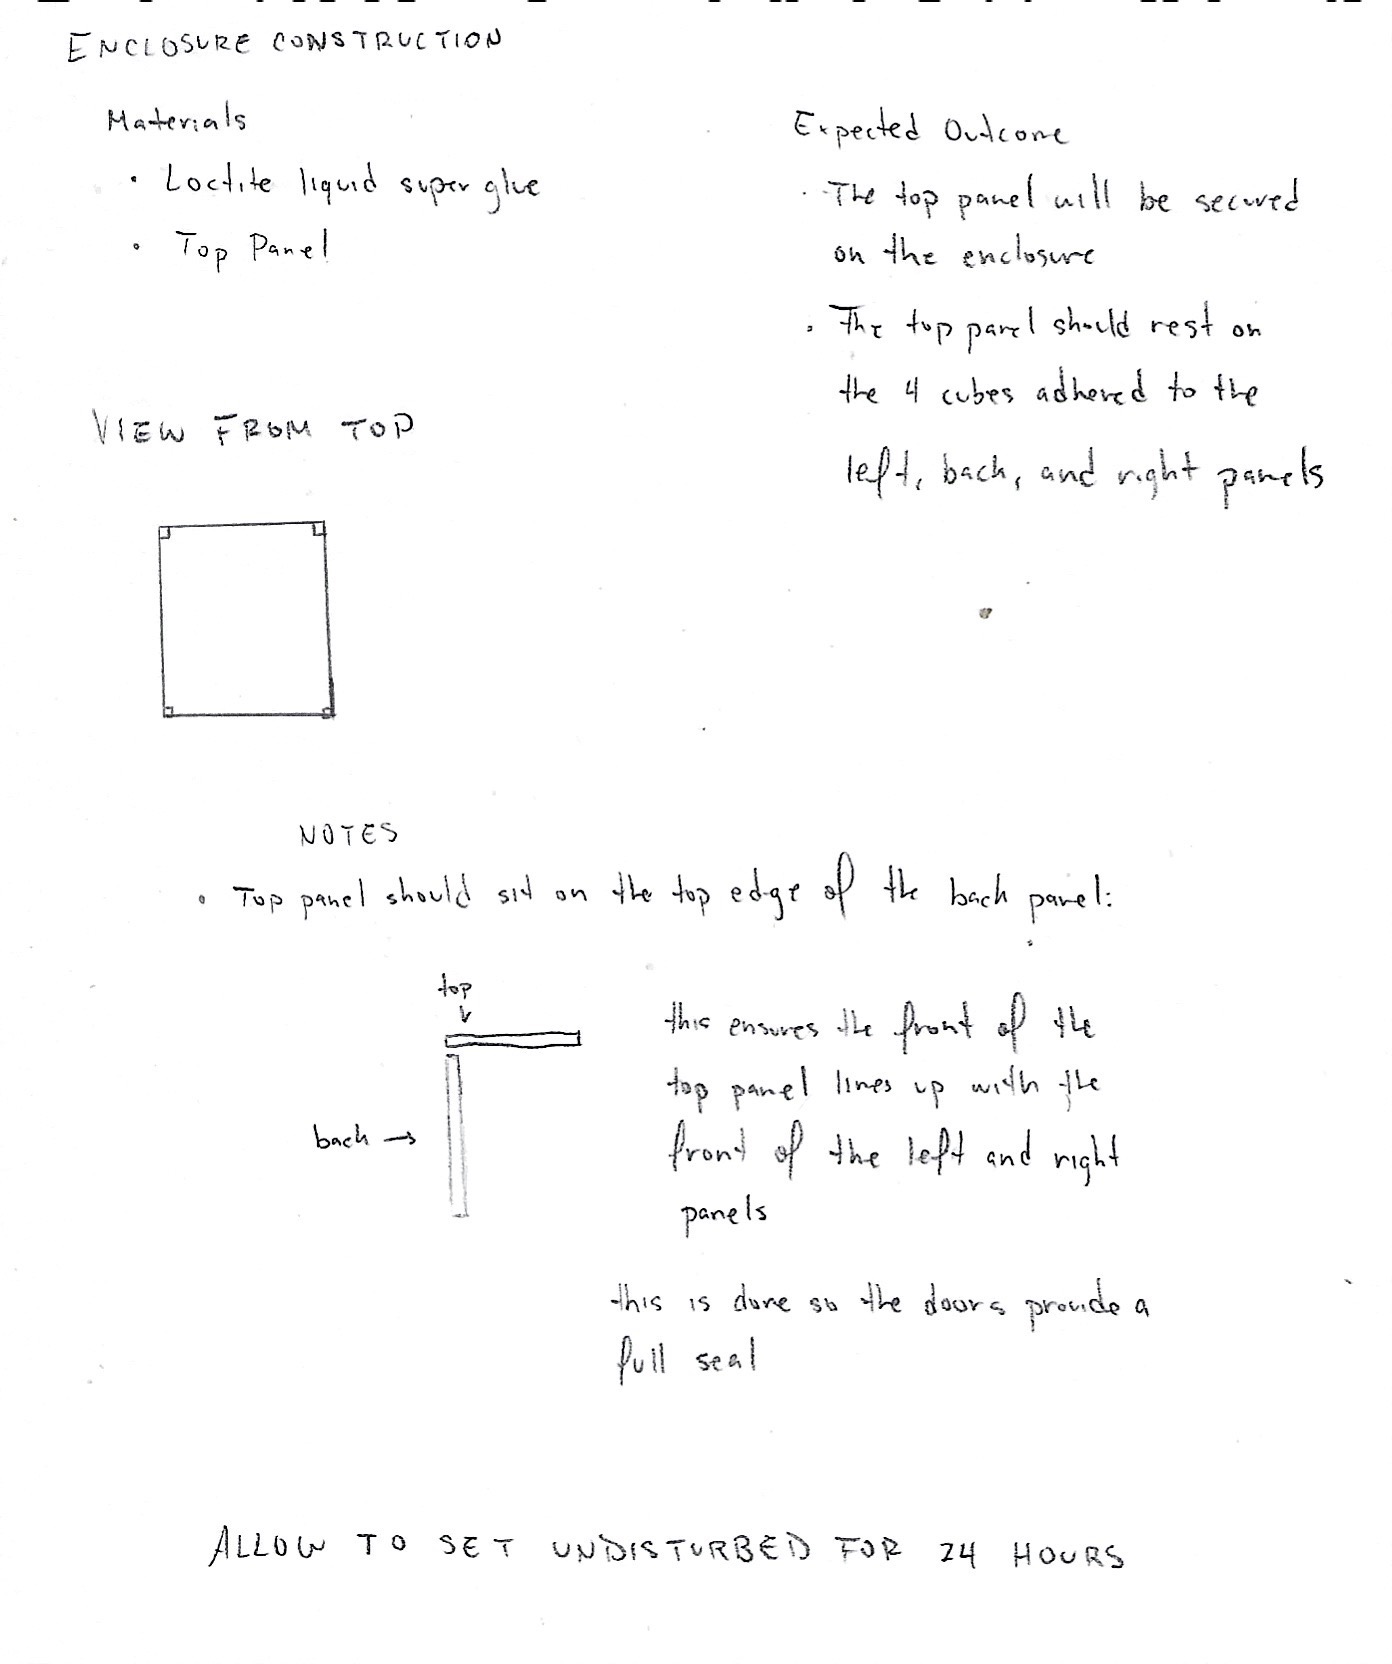 ENCLOSURE CONSTRUCTION
Materials
• Loctite liquid super glue
• Top Panel
Expected Outcome
• The top panel will be secured
on the enclosure
• The top panel should rest on
the 4 cubes adhered to the
left, back, and right panels
VIEW FROM TOP
NOTES
• Top panel should sit on the top edge of the back panel:
top
back →
this ensures the front of the
top panel lines up with the
front of the left and right
panels
this is done so the doors provide a
full seal
ALLOW TO SET UNDISTURBED FOR 24 HOURS